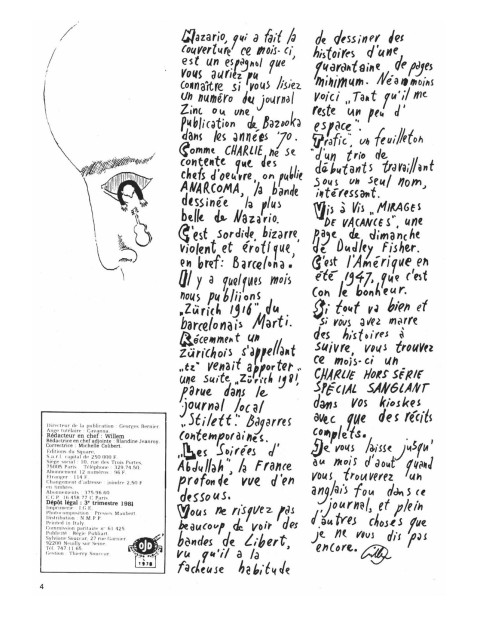 Nazario, qui a fait la
couverture ce mois-ci,
est un espagnol que
vous auriez pu
connaître si vous lisiez
un numéro du journal
Zinc ou une
publication de Bazooka
dans les années '70.
Comme CHARLIE, ne se
contente que des
chefs d'oeuvre, on publie
ANARCOMA, la bande
dessinée la plus
belle de Nazario.
C'est sordide, bizarre,
violent et érotique,
en bref: Barcelona.
Il y a quelques mois
nous publiions
"Zürich 1916" du
barcelonais Marti.
Récemment un
zürichois s'appellant
"tz" venait apporter
une suite, "Zürich 1981,
parue dans le
journal local
"Stilett". Bagarres
contemporaines.
"Les Soirées d'
Abdullah", la France
profonde vue d'en
dessous.
Vous ne risquez pas
beaucoup de voir des
bandes de Libert,
vu qu'il a la
facheuse habitude
de dessiner des
histoires d'une
quarantaine de pages
minimum. Néanmoins
voici "Tant qu'il me
reste un peu d'
espace".
Trafic, un feuilleton
d'un trio de
débutants travaillant
sous un seul nom,
intéressant.
Vis à Vis "MIRAGES
DE VACANCES", une
page de dimanche
de Dudley Fisher.
C'est l'Amérique en
été 1947, que c'est
con le bonheur.
Si tout va bien et
si vous avez marre
des histoires à
suivre, vous trouvez
ce mois-ci un
CHARLIE HORS SÉRIE
SPÉCIAL SANGLANT
dans vos kioskes
avec que des récits
complets.
Je vous laisse jusqu'
au mois d'aout quand
vous trouverez un
anglais fou dans ce
journal, et plein
d'autres choses que
je ne vous dis pas
encore.
Directeur de la publication : Georges Bernier
Ange tutélaire : Cavanna
Rédacteur en chef : Willem
Rédactrice en chef adjointe : Blandine Jeanroy
Correctrice : Michelle
Editions du Square,
S.a.r.l. capital de 250.000 F
Siège social : 10, rue des Trois Portes,
75005 Paris Téléphone : 329.74.50.
Abonnement 12 numéros : 96 F
Etranger : 114 F
Changement d'adresse : joindre 2,50 F
en timbres.
Abonnements :
C.C.P. Paris
Dépôt légal : 3e trimestre 1981
Imprimerie :
Photocomposition : Presses Maubert
Distribution : N.M.P.P.
Printed in Italy
Commission paritaire n° 51 425
Publicité : Régie Publikart
27 rue Garnier
92200 Neuilly sur Seine
Tél. 747.11.65
Gestion : Thierry
OJD
1978
4